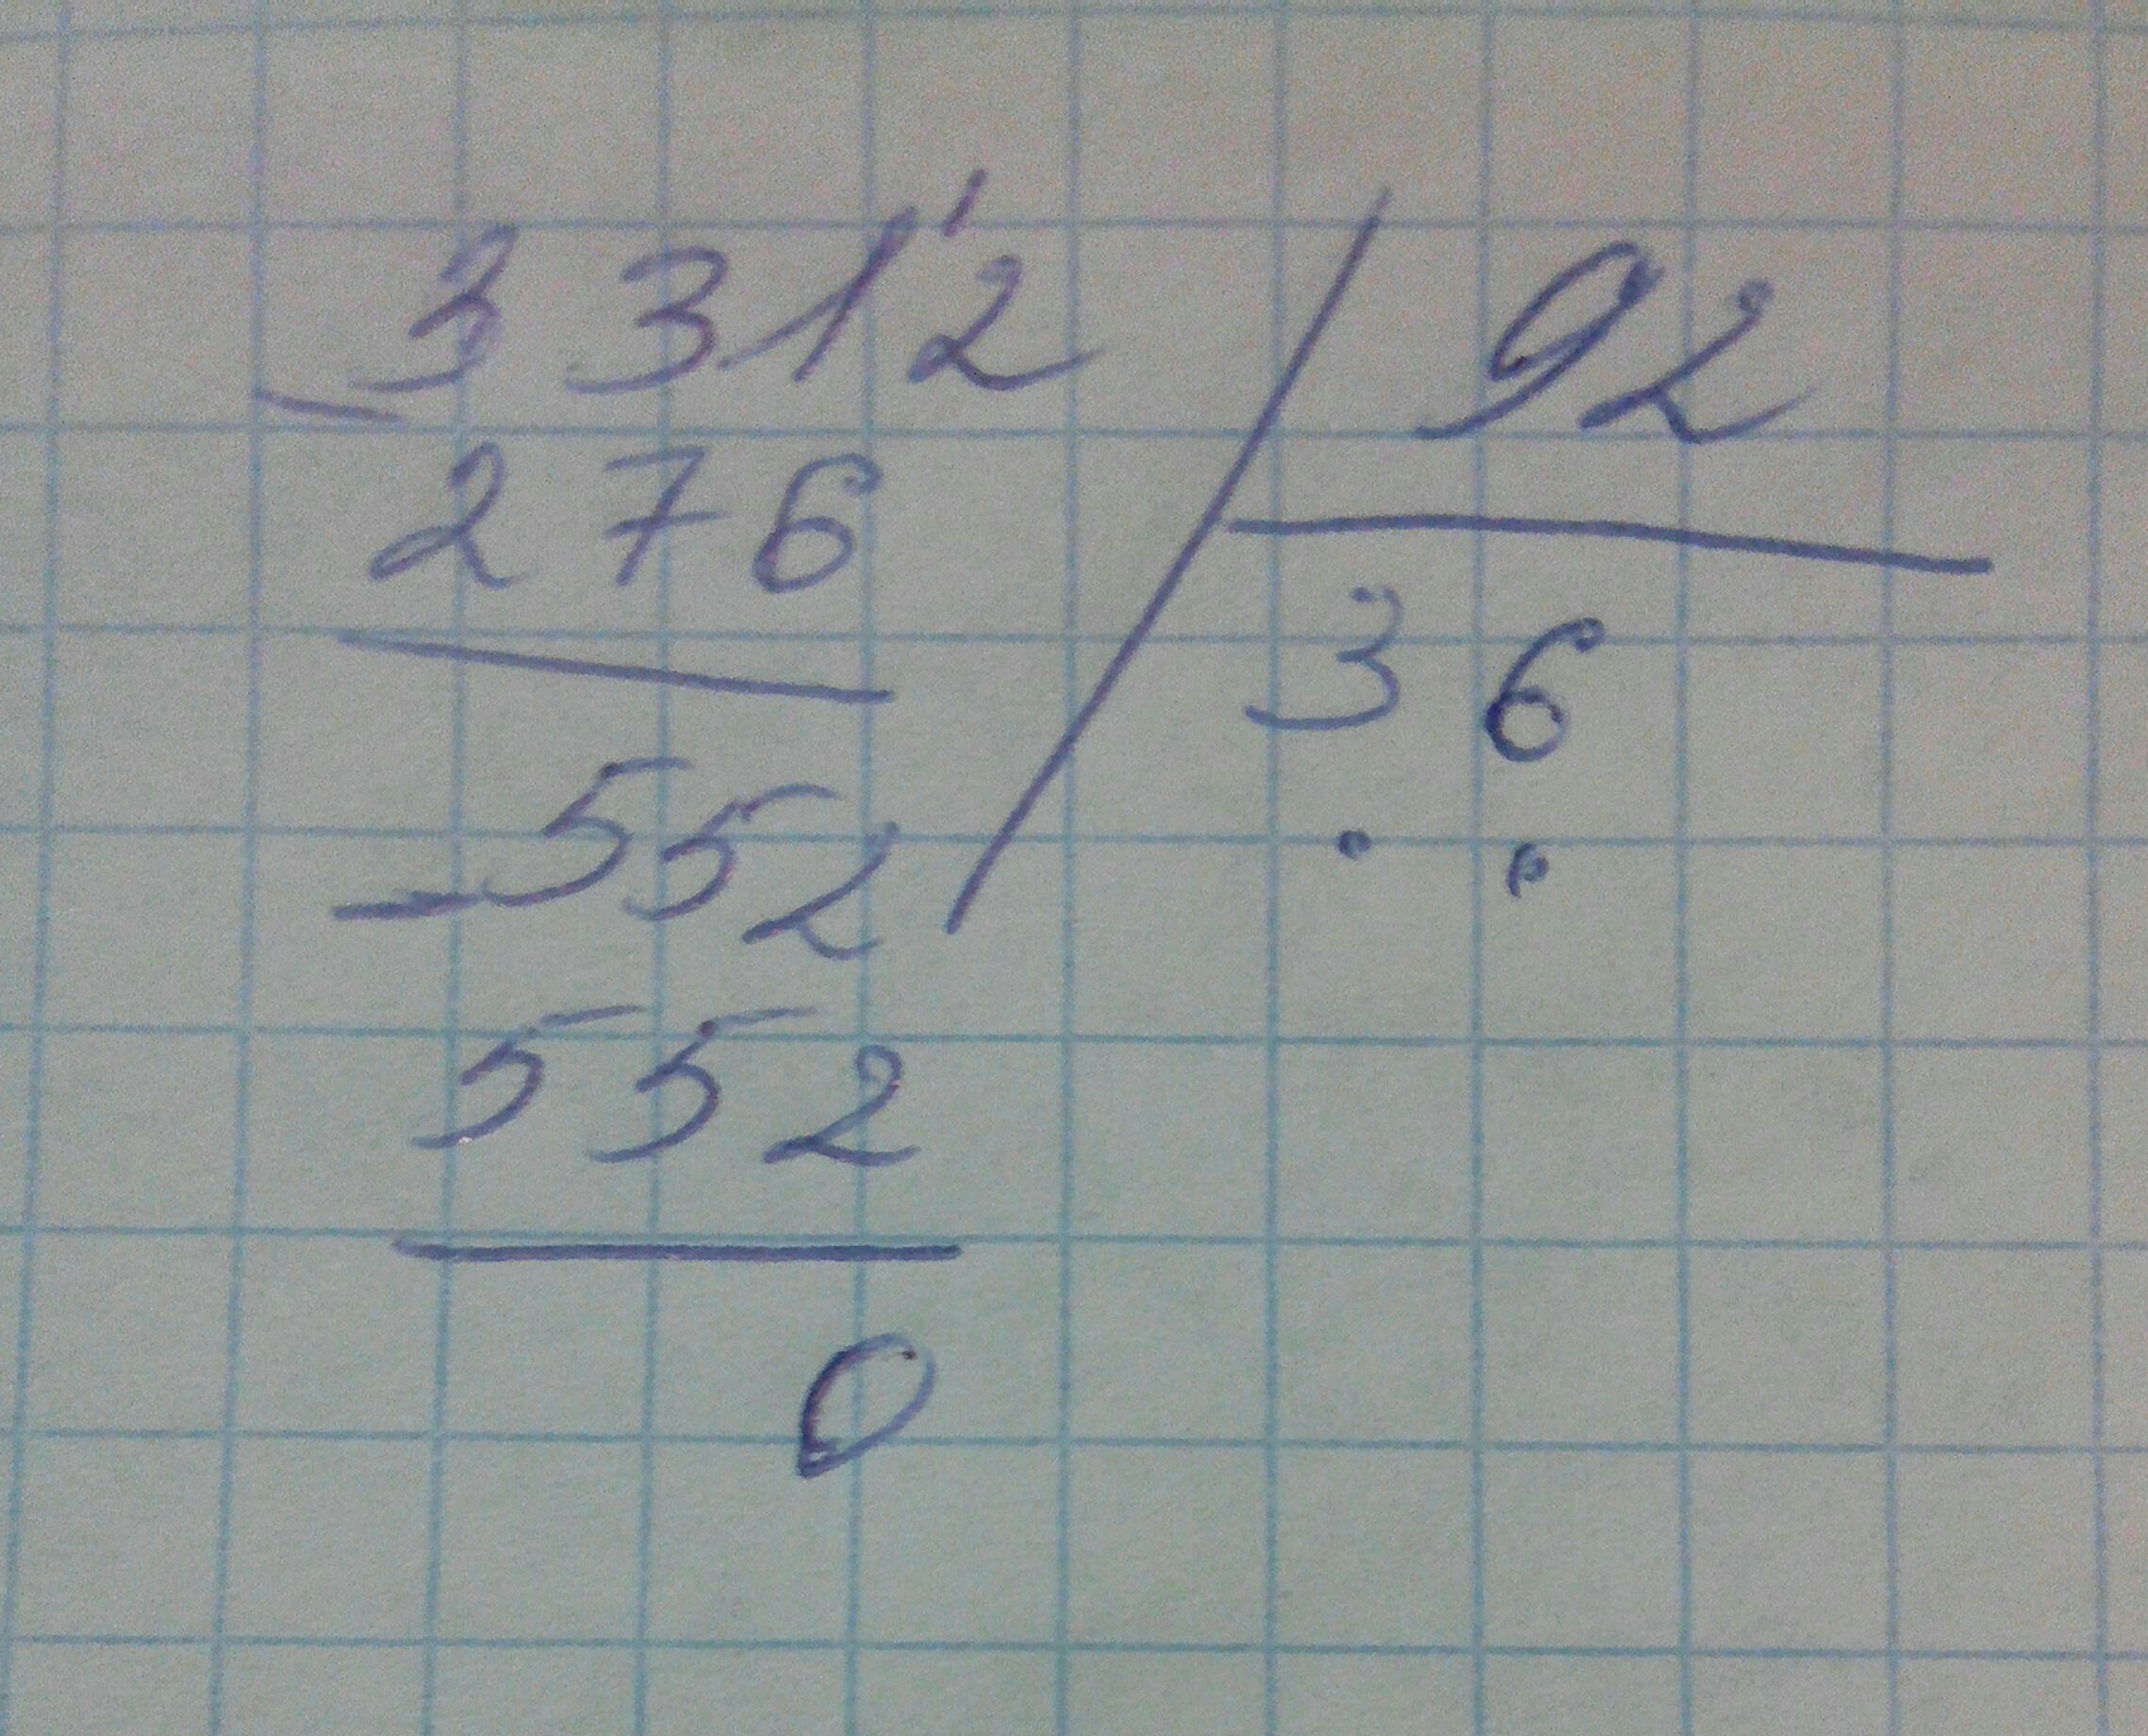 3312 92
276
36
552
552
0